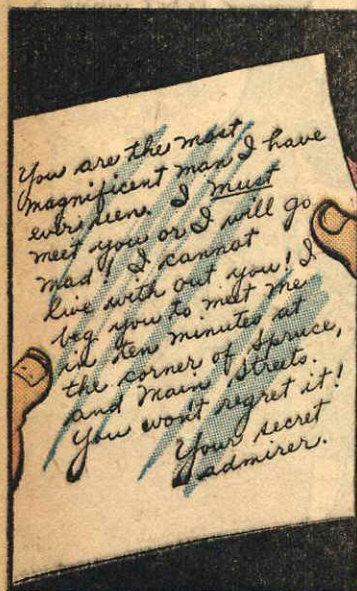 You are the most
magnificent man I have
ever seen. I must
meet you or I will go
mad! I cannot
live with out you! I
beg you to meet me
in ten minutes at
the corner of Spruce,
and Main Streets.
You won't regret it!
Your secret
admirer.